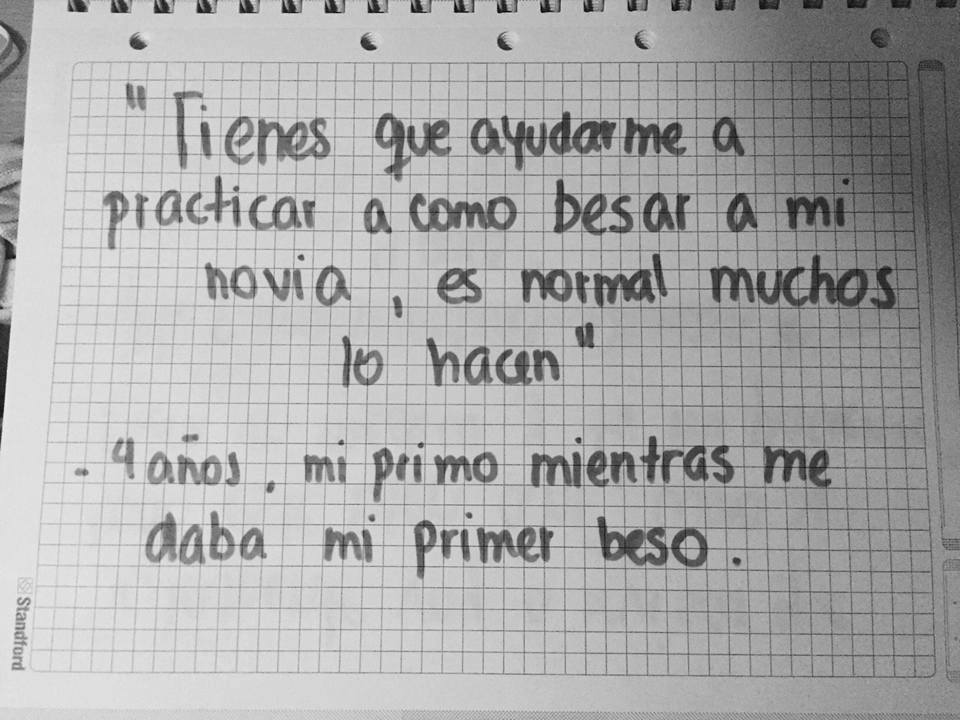 "Tienes que ayudarme a
practicar a como besar a mi
novia, es normal muchos
lo hacen"
- 4 años, mi primo mientras me
daba mi primer beso.
Standford